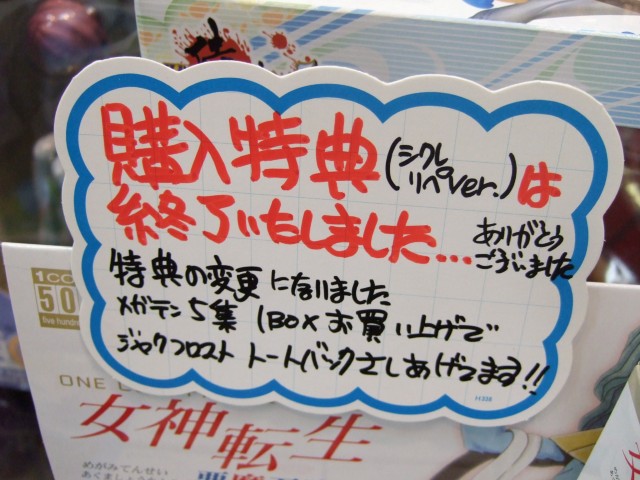 購入特典(シクレリペver.)は
終了いたしました…ありがとうございました
特典の変更になりました
メガテン5集 1BOXお買い上げで
ジャックフロスト トートバックさしあげてます!!
11338
1CO
50
five hundre
ONE
女神転生
めがみてんせい
あくましょうかん